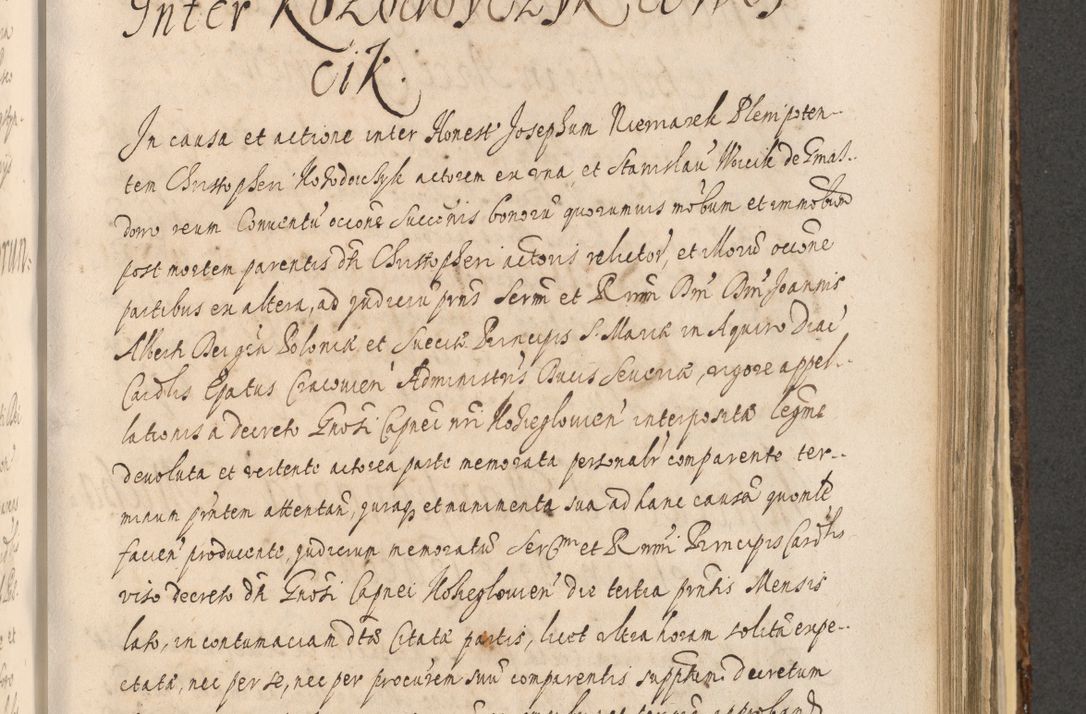 Inter
cik.
In causa et actione inter Honest' Josephum Niemarek Plenipoten-
tem Christopheri Kołodoiczyk actorem ex una, et Stanislau' Woicik de
dorro reum Conventu' occone Succonis bonoru' quorumvis mobum et immobium
post mortem parentis dti Christopheri actoris relictor', et illorum occone
partibus ex altera, ad judiciu' prns Sermi et Rmmi Dni Dni Joannis
Alberti Dei gra Poloniæ et Sueciæ Principis S. Mariæ in Aquiro Diac'
Cardlis Epatus Cracovien' Administris Ducis Severiæ, vigore appel-
lationis a decreto Gnosi Capnei nri Koziegłovien' interpositæ legme
devoluta et vertente actorea parte memorata personalr comparente ter-
minum prntem attentan', juraq; et munimenta sua ad hanc causa' quomlt
facien' producente, judicium memoratu' Sermi et Rmmi Principis Cardlis
viso decreto dti Gnosi Capnei Koziegłovien' die tertia prntis Mensis
lato, in contumaciam dtæ Citatæ partis, licet ultra horam solita' expe-
ctatæ, nec per se, nec per procurem suu' comparentis suppttum decretum